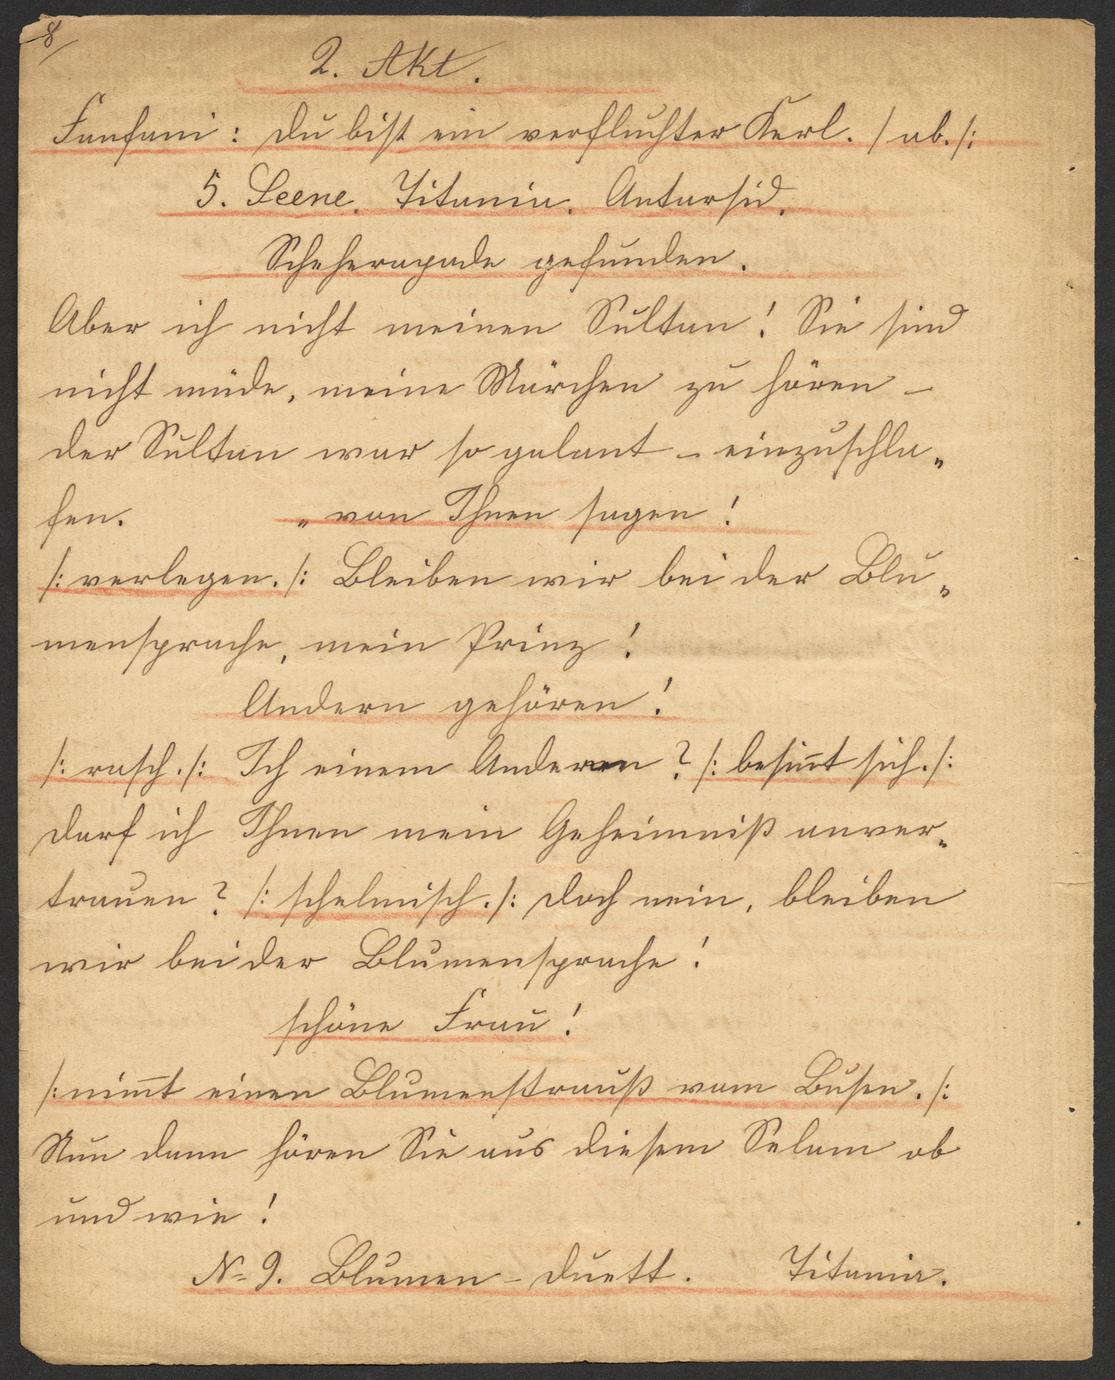 8/
2. Akt.
Fanfani : Du bist ein verfluchter Kerl. /ab./:
5. Scene. Titania. Antarsid.
Scheherazade gefunden.
Aber ich nicht meinen Sultan! Sie sind
nicht müde, meine Märchen zu hören –
der Sultan war so galant – einzuschla„
fen. „ von Ihnen sagen!
/: verlegen. /: Bleiben wir bei der Blu„
mensprache, mein Prinz!
Andern gehören!
/: rasch. /: Ich einem Anderen? /: besin̅t sich. /:
Darf ich Ihnen mein Geheimniß anver„
trauen? /: schelmisch. /: Doch nein, bleiben
wir bei der Blumensprache!
schöne Frau!
/: nim̅t einen Blumenstrauß vom Busen. /:
Nun dann hören Sie aus diesem Selam ob
und wie!
No 9. Blumen – Duett. Titania.